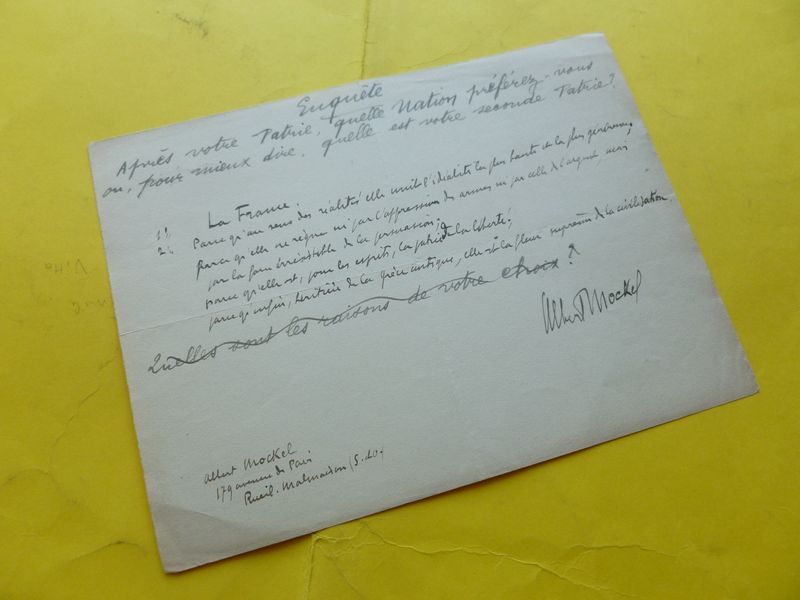 Enquête
Après votre Patrie, quelle Nation préférez-vous
ou, pour mieux dire, quelle est votre seconde Patrie?
1°/ La France.
2°/ Parce qu'au sens des réalités elle unit l'idéalité la plus haute et la plus généreuse;
Parce qu'elle ne règne ni par l'oppression des armes ni par celle de l'argent mais
par la force irrésistible de la persuasion;
parce qu'elle est, pour les esprits, la patrie de la liberté;
parce qu'enfin, héritière de la grèce antique, elle est la fleur suprême de la civilisation.
Quelles sont les raisons de votre choix?
Albert Mockel
Albert Mockel
179 avenue de Paris
Rueil-Malmaison (S.&O.)